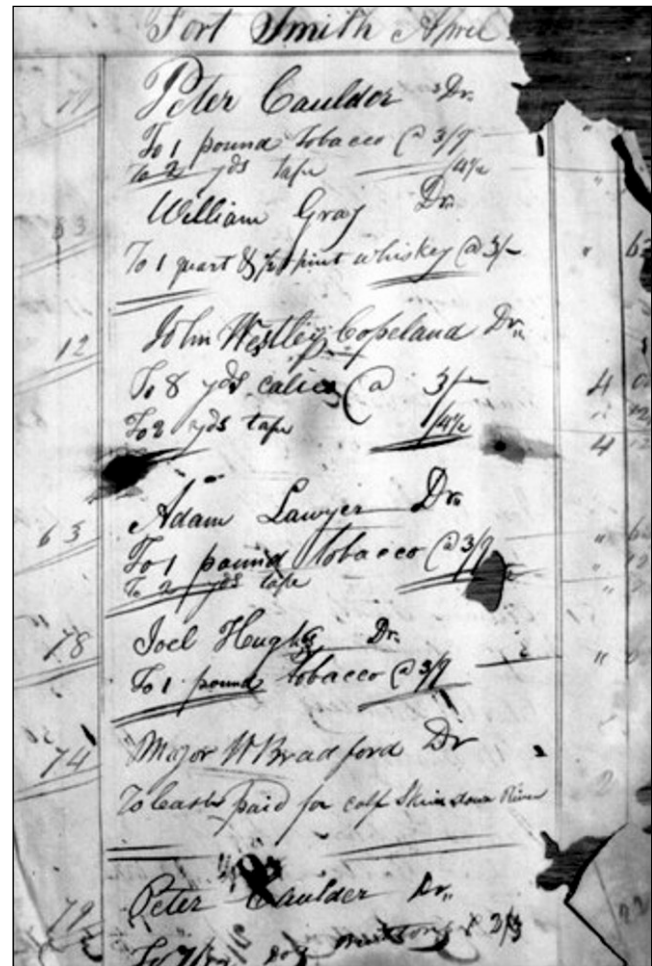 Fort Smith April
Peter Caulder Dr.
To 1 pound tobacco @ 3/9
to 2 yds tape /4½
William Gray Dr.
63
To 1 quart & pint whiskey @ 3/- " 62
12 John Westley Copeland Dr.
To 8 yds calico @ 3/- 4 0
To 2 yds tape /4½ " 12
4 12
Adam Lawyer Dr.
63
To 1 pound tobacco @ 3/9 "
To 2 yds tape "
78 Joel Hughs Dr.
To 1 pound tobacco @ 3/9 "
74 Major W Bradford Dr
To Cash paid for calf Skins down River 2
79 Peter Caulder Dr.
To @ 2/3